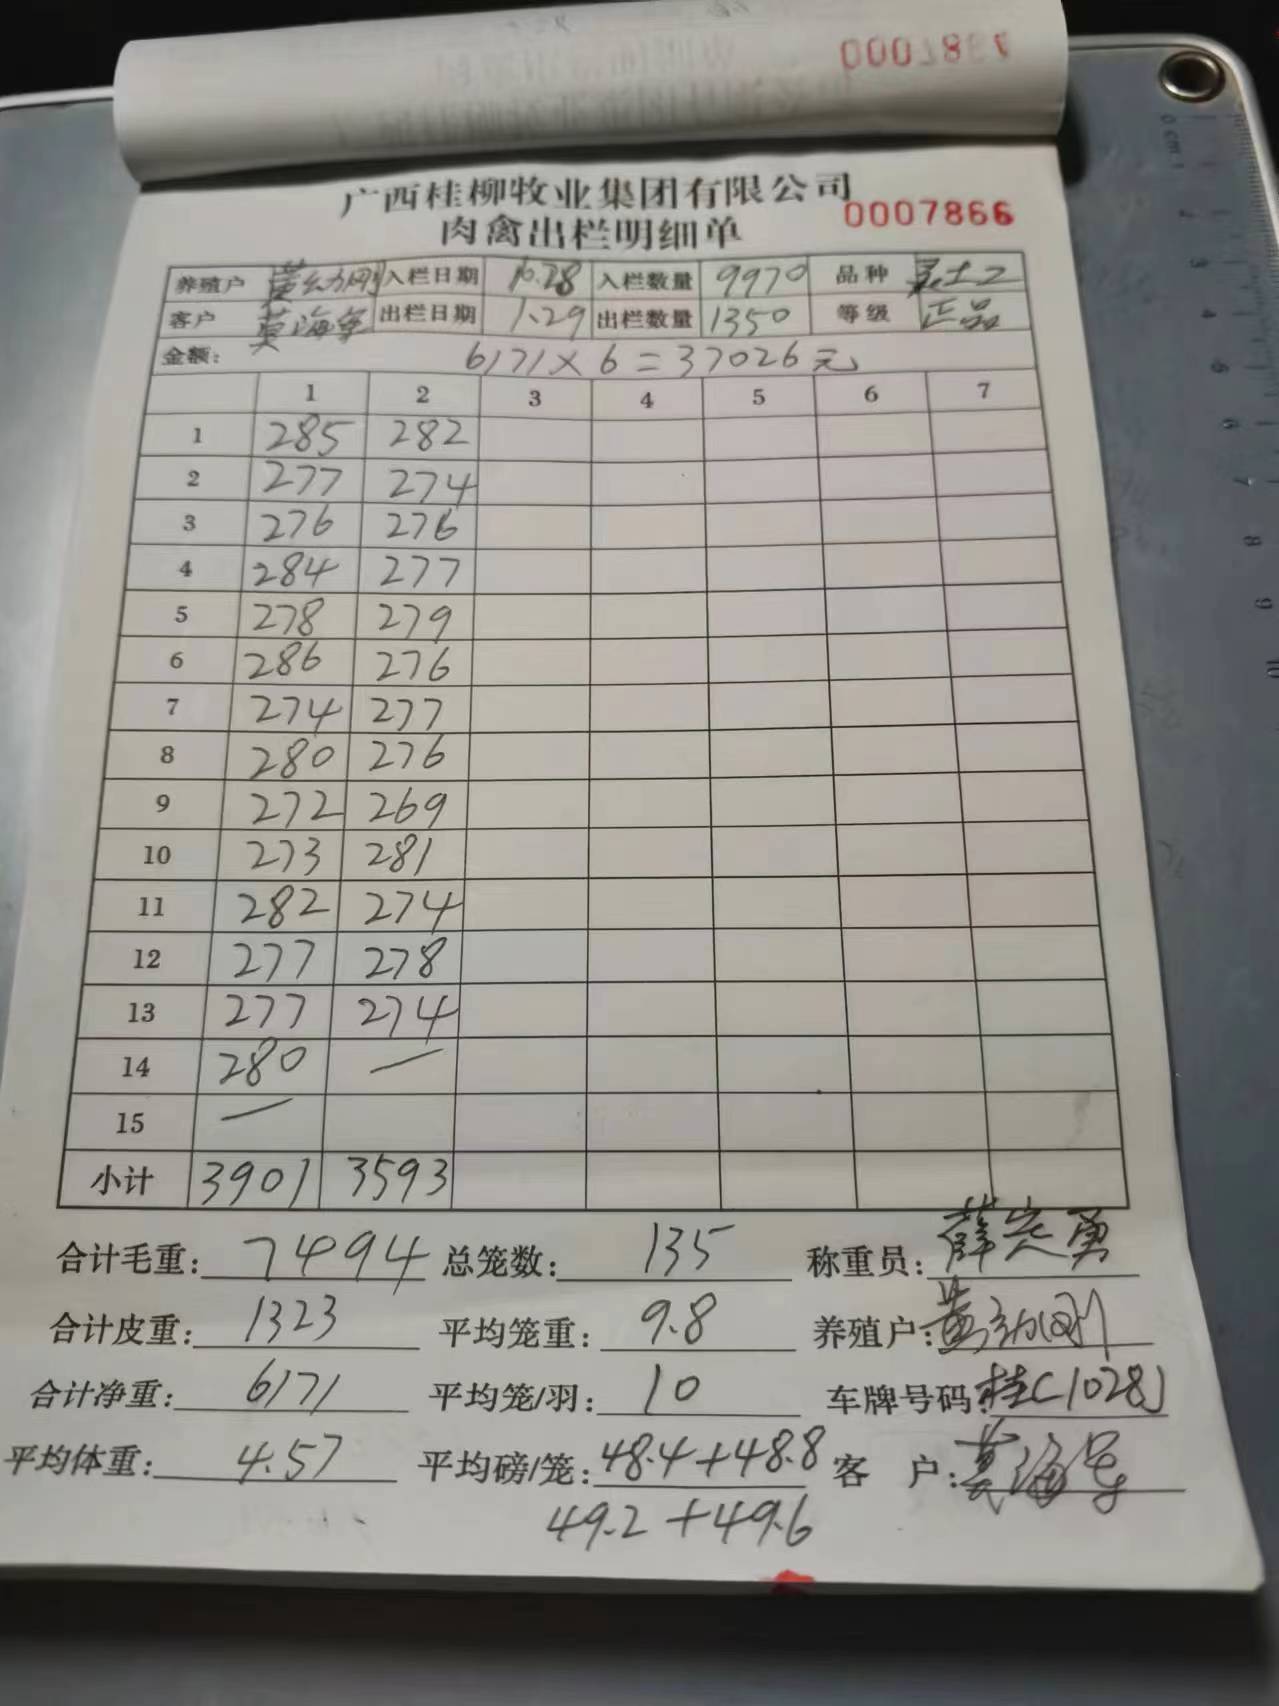 0007867
广西桂柳牧业集团有限公司
肉禽出栏明细单
0007866
养殖户 黄幼刚 入栏日期 10.28 入栏数量 9970 品种 土2
客户 莫海军 出栏日期 1.29 出栏数量 1350 等级 正品
金额: 6171×6=37026元
1 2 3 4 5 6 7
1 285 282
2 277 274
3 276 276
4 284 277
5 278 279
6 286 276
7 274 277
8 280 276
9 272 269
10 273 281
11 282 274
12 277 278
13 277 274
14 280 —
15 —
小计 3901 3593
合计毛重: 7494 总笼数: 135 称重员: 薛定勇
合计皮重: 1323 平均笼重: 9.8 养殖户: 黄幼刚
合计净重: 6171 平均笼/羽: 10 车牌号码: 桂C1028J
平均体重: 4.57 平均磅/笼: 48.4+48.8 客 户: 莫海军
49.2+49.6